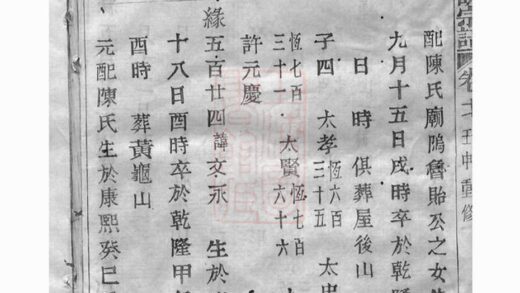 壬申重修
配陳氏廟隝詹貽公之女生
九月十五日戌時卒於乾隆
日 時 俱葬屋後山
子四 太孝 恆六百三十五 太
恆七百三十一 太賢 恆七百六十六
許元慶
緣五百廿四 諱文永 生於
十八日酉時卒於乾隆甲
酉時 葬黃龜山
元配陳氏生於康熙癸巳